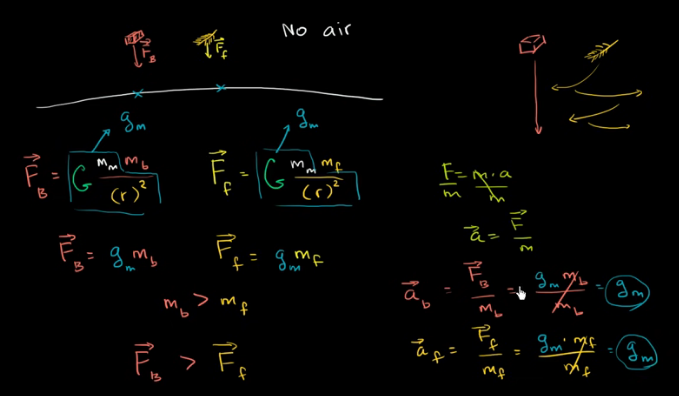 No air
F⃗_B
F⃗_f
g_m
g_m
F⃗_B = G m_m m_b / (r)²
F⃗_f = G m_m m_f / (r)²
F/m = m·a/m
a⃗ = F⃗/m
F⃗_B = g_m m_b
F⃗_f = g_m m_f
m_b > m_f
F⃗_B > F⃗_f
a⃗_b = F⃗_B/m_b = g_m m_b/m_b = g_m
a⃗_f = F⃗_f/m_f = g_m·m_f/m_f = g_m